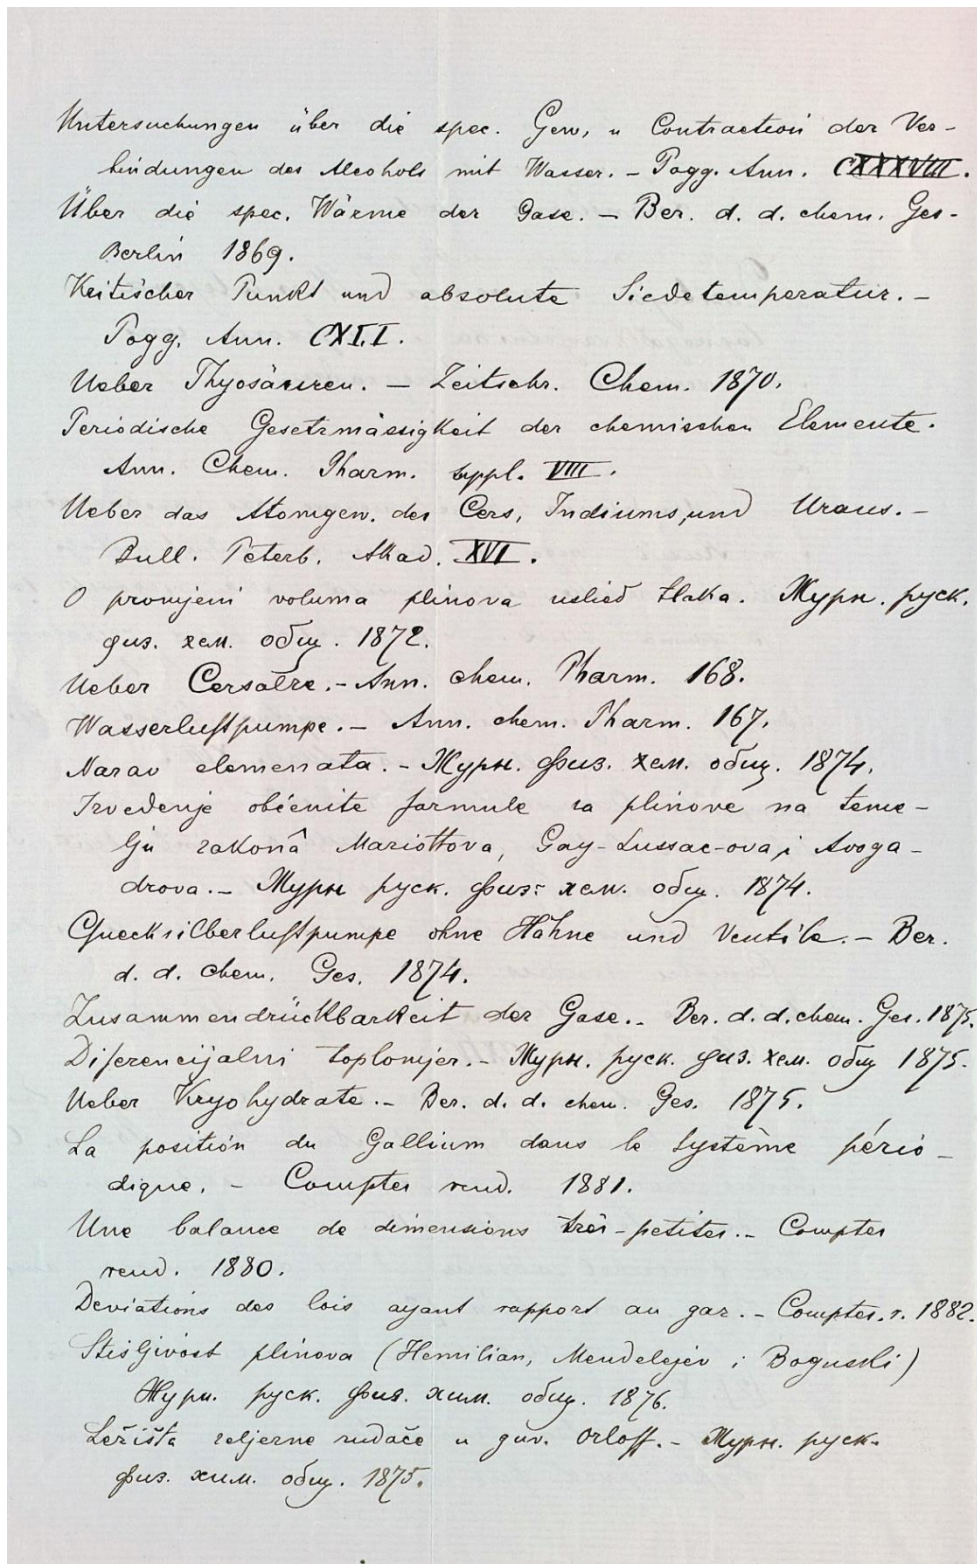 Untersuchungen über die spec. Gew, u Contraction der Ver-
bindungen des Alcohols mit Wasser. – Pogg. Ann. CXXXVIII.
Über die spec. Wärme der Gase. – Ber. d. d. chem. Ges-
Berlin 1869.
Kritischer Punkt und absolute Siedetemperatur. –
Pogg. Ann. CXLI.
Ueber Thyosäuren. – Zeitschr. Chem. 1870.
Periodische Gesetzmässigkeit der chemischen Elemente.
Ann. Chem. Pharm. suppl. VIII.
Ueber das Atomgew. des Cers, Indiums, und Urans. –
Bull. Peterb. Akad. XVI.
O promjeni voluma plinova uslied tlaka. Журн. руск.
физ. хем. общ. 1872.
Ueber Cersalze. – Ann. chem. Pharm. 168.
Wasserluftpumpe. – Ann. chem. Pharm. 167.
Narav elemenata. – Журн. физ. хем. общ. 1874.
Izvedenje obćenite formule za plinove na teme-
lju zakonâ Mariottova, Gay-Lussac-ova i Avoga-
drova. – Журн руск. физ. хем. общ. 1874.
Quecksilberluftpumpe ohne Hähne und Ventile. – Ber.
d. d. chem. Ges. 1874.
Zusammendrückbarkeit der Gase. – Ber. d. d. chem. Ges. 1875.
Diferencijalni toplomjer. – Журн. руск. физ. хем. общ 1875.
Ueber Kryohydrate. – Ber. d. d. chem. Ges. 1875.
La position du Gallium dans le Système pério-
dique. – Comptes rend. 1881.
Une balance de dimensions très-petites. – Comptes
rend. 1880.
Deviations des lois ayant rapport au gaz. – Comptes. r. 1882.
Stisljivost plinova (Hemilian, Mendelejev i Boguski)
Журн. руск. физ. хим. общ. 1876.
Ležišta željezne rudače u guv. Orloff. – Журн. руск.
физ. хим. общ. 1875.